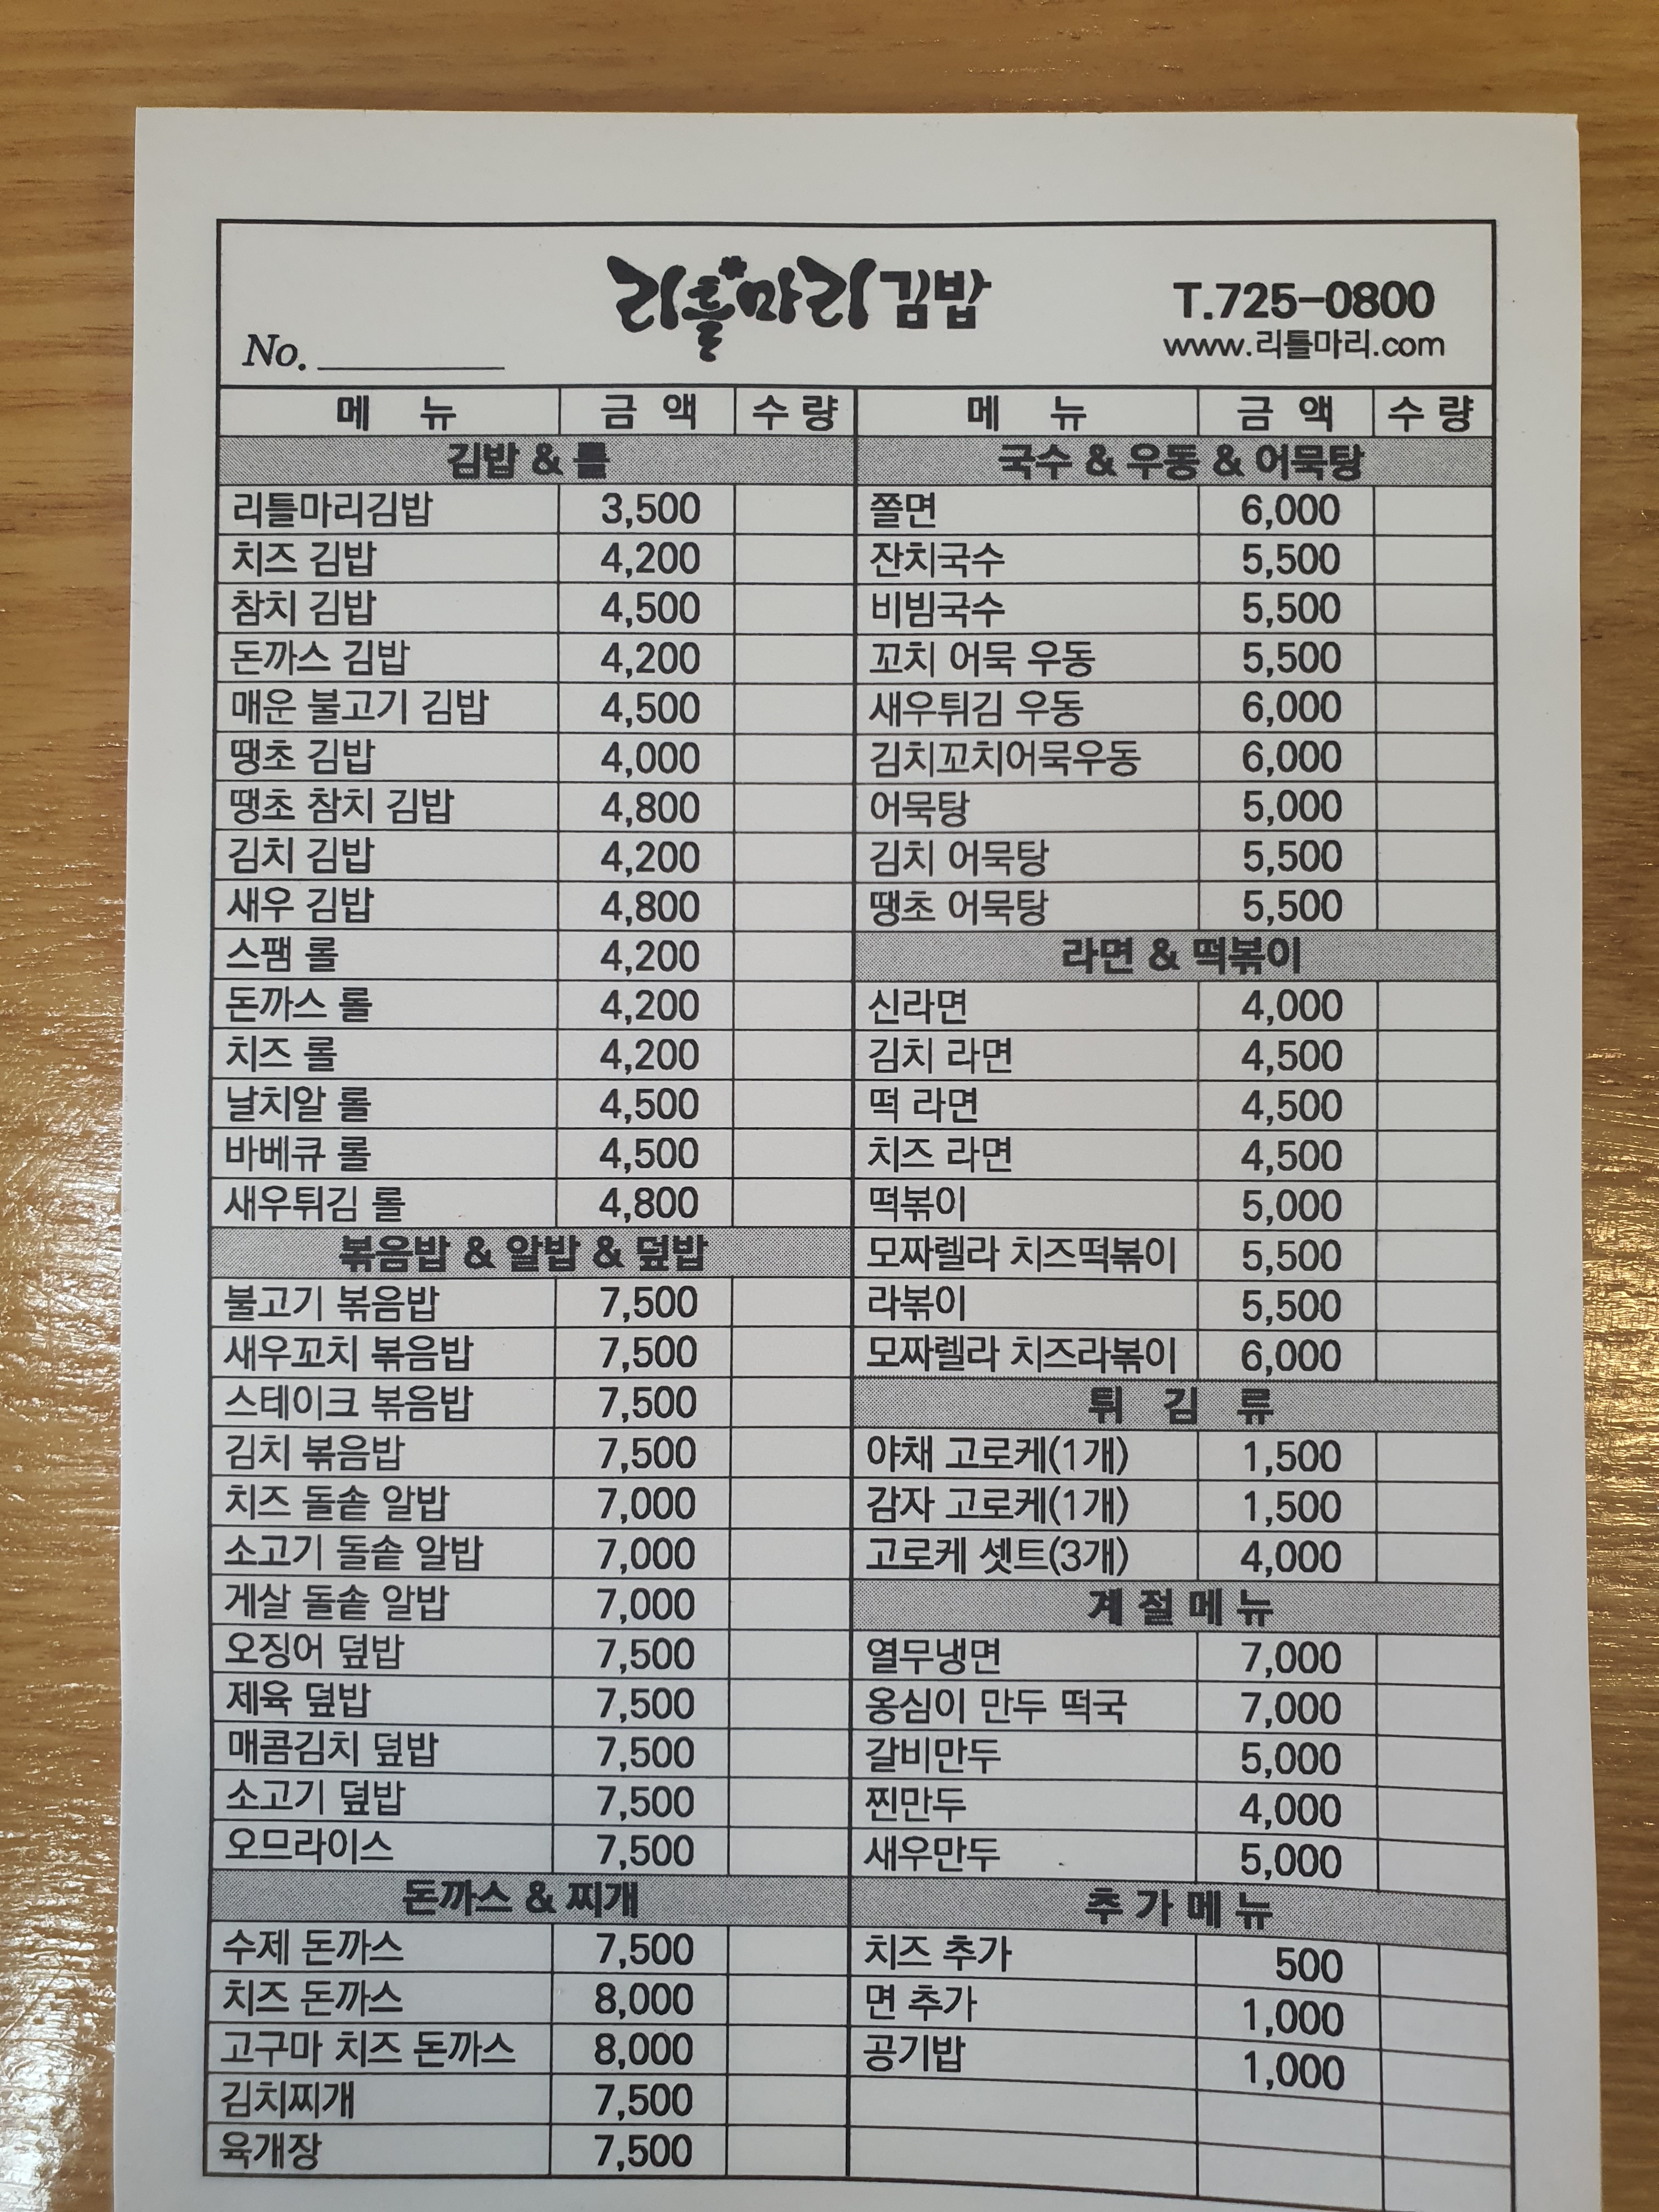 리틀마리김밥
T.725-0800
www.리틀마리.com
No.
메 뉴 금 액 수 량
김밥 & 롤
리틀마리김밥 3,500
치즈 김밥 4,200
참치 김밥 4,500
돈까스 김밥 4,200
매운 불고기 김밥 4,500
땡초 김밥 4,000
땡초 참치 김밥 4,800
김치 김밥 4,200
새우 김밥 4,800
스팸 롤 4,200
돈까스 롤 4,200
치즈 롤 4,200
날치알 롤 4,500
바베큐 롤 4,500
새우튀김 롤 4,800
볶음밥 & 알밥 & 덮밥
불고기 볶음밥 7,500
새우꼬치 볶음밥 7,500
스테이크 볶음밥 7,500
김치 볶음밥 7,500
치즈 돌솥 알밥 7,000
소고기 돌솥 알밥 7,000
게살 돌솥 알밥 7,000
오징어 덮밥 7,500
제육 덮밥 7,500
매콤김치 덮밥 7,500
소고기 덮밥 7,500
오므라이스 7,500
돈까스 & 찌개
수제 돈까스 7,500
치즈 돈까스 8,000
고구마 치즈 돈까스 8,000
김치찌개 7,500
육개장 7,500
메 뉴 금 액 수 량
국수 & 우동 & 어묵탕
쫄면 6,000
잔치국수 5,500
비빔국수 5,500
꼬치 어묵 우동 5,500
새우튀김 우동 6,000
김치꼬치어묵우동 6,000
어묵탕 5,000
김치 어묵탕 5,500
땡초 어묵탕 5,500
라면 & 떡볶이
신라면 4,000
김치 라면 4,500
떡 라면 4,500
치즈 라면 4,500
떡볶이 5,000
모짜렐라 치즈떡볶이 5,500
라볶이 5,500
모짜렐라 치즈라볶이 6,000
튀 김 류
야채 고로케(1개) 1,500
감자 고로케(1개) 1,500
고로케 셋트(3개) 4,000
계절메뉴
열무냉면 7,000
옹심이 만두 떡국 7,000
갈비만두 5,000
찐만두 4,000
새우만두 5,000
추가메뉴
치즈 추가 500
면 추가 1,000
공기밥 1,000